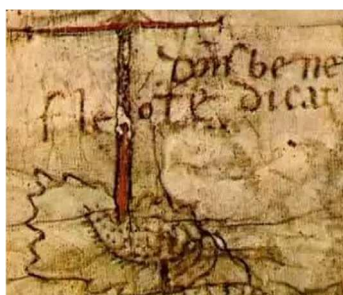 dn̄s bene
f leo te dicat